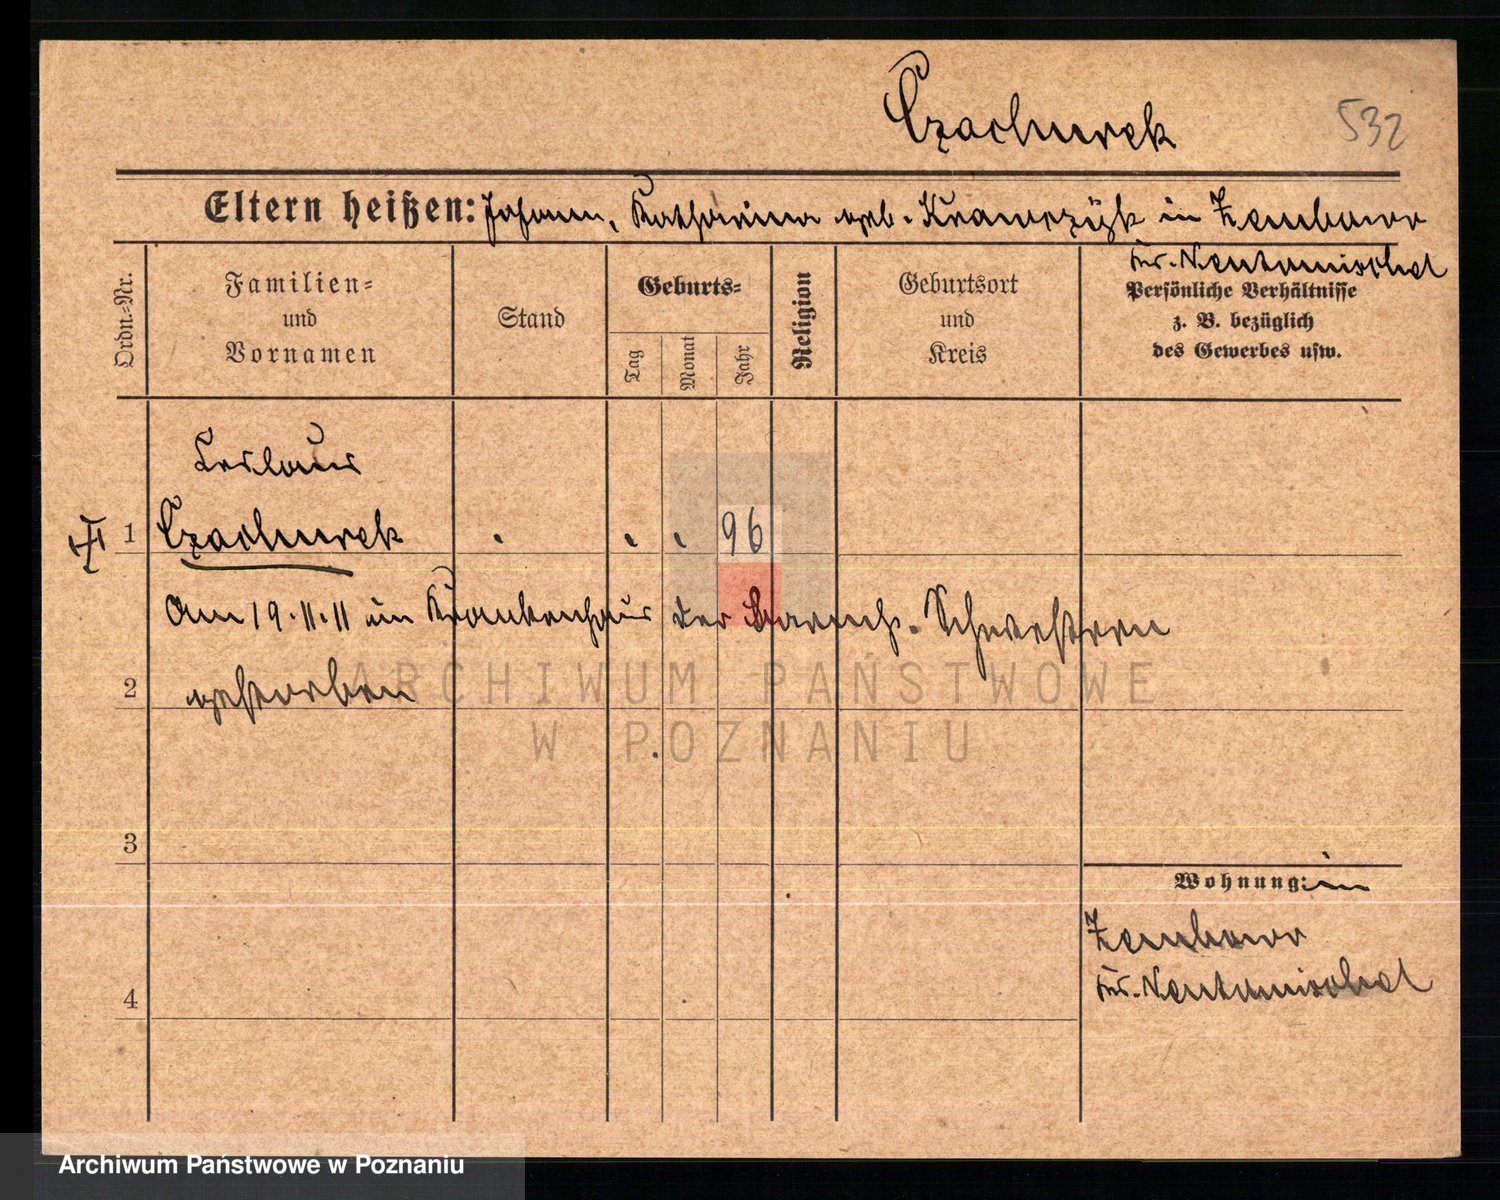 Czachurek 532
Eltern heißen: Johann, Katharina geb. Krawczyk in Zembowo
Kr. Neutomischel
Ordn.-Nr.
Familien-
und
Vornamen
Stand
Geburts-
Tag
Monat
Jahr
Religion
Geburtsort
und
Kreis
Persönliche Verhältnisse
z. B. bezüglich
des Gewerbes usw.
1 Czachurek . . . 96
Am 19.11.11 im Krankenhaus der Barmh. Schwestern
2 gestorben
3
Wohnung: in
Zembowo
4 Kr. Neutomischel
ARCHIWUM PAŃSTWOWE
W POZNANIU
Archiwum Państwowe w Poznaniu